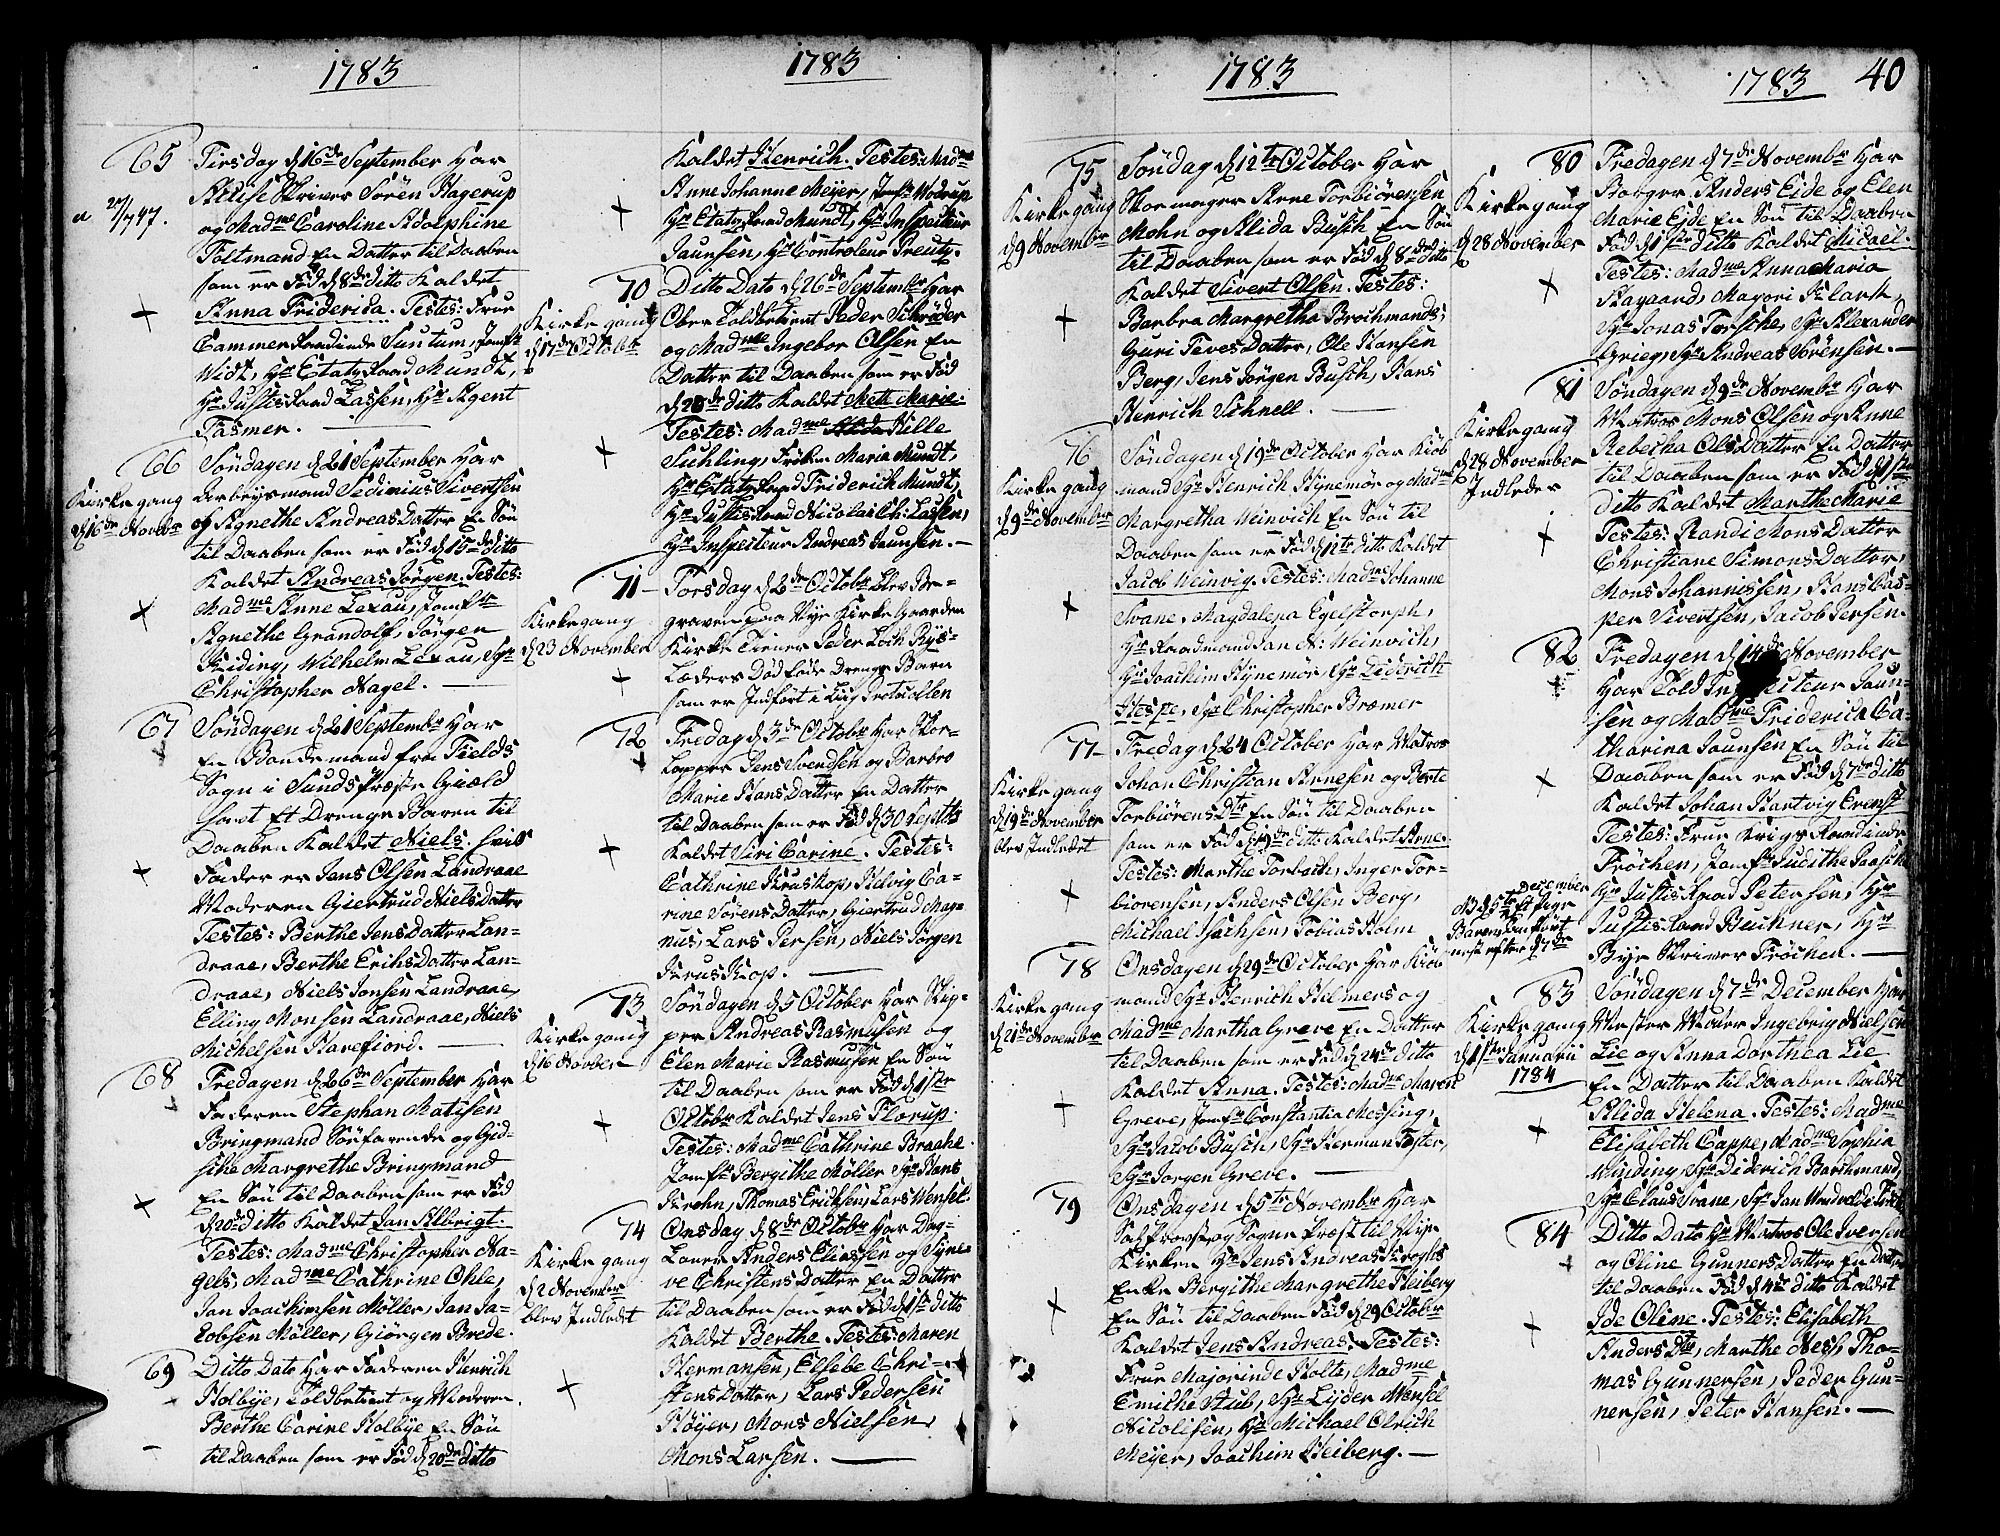 1783
65
a 27/747.
Tirsdag d 16de September Har
Stifts Skriver Sören Hagerup
og Madme Caroline Adolphine
Foltmand En Datter til Daaben
som er Föd d 8de ditto Kaldet
Anna Friderica. Testes: Frue
Cammer Raadinde Suntum, Jomfr
Widt, Hr Etatz Raad Mundt,
Hr Justis Raad Lassen, Hr Agent
Fasmer.
66
Kirkegang
d 16de Novbr
Söndagen d 21 September Har
Arbeysmand Sedinius Sivertsen
og Agnethe Andreas Datter En Sön
til Daaben som er Föd d 15de ditto
Kaldet Andreas Jörgen. Testes:
Madme Anne Lexau, Jomfr
Agnethe Grandolf, Jörgen
Riding, Wilhelm Lexau, Sgr
Christopher Nagel.
67
Söndagen d 21 Septembr Har
En Bondemand fra Fields
Sogn i Sunds Præste Gield
havt Et Drenge Baren til
Daaben Kaldet Niels. hvis
Fader er Jens Olsen Landraae
Moderen Giertrud Niels Datter
Testes: Berthe Jens Datter Lan-
draae, Berthe Erichs Datter Lan-
draae, Niels Jonsen Landraae,
Elling Monsen Landraae, Niels
Michelsen Havefiord.
68
Fredagen d 26de September Har
Faderen Stephan Matisen
Bringmand Söefarende og Gid-
sche Margrethe Bringmand
En Sön til Daaben som er Föd
d 20de ditto Kaldet Jan Albrigt.
Testes: Madme Christopher Na-
gels, Madme Cathrine Ohle,
Jan Joachimsen Möller, Jan Ja-
cobsen Möller, Giörgen Brede.
69
Ditto Dato Har Faderen Hinrich
Holbye, Toldbetient og Moderen
Berthe Carine Holbye En Sön
til Daaben som er Föd d 20de ditto
1783
Kaldet Henrich. Testes: Madme
Anne Johanne Meyer, Jomfr Wedrup
Hr Etatz Raad Mundt, Hr Inspecteur
Jaunsen, Hr Controleur Treutz.
70
Kirkegang
d 17de Octobr
Ditto Dato d 26de Septembr Har
Ober Toldbetient Peder Schröder
og Madme Ingebor Olsen En
Datter til Daaben som er Föd
d 20de ditto Kaldet Mette Marie.
Testes: Madme Hille
Suhling, Fröken Maria Mundt,
Hr Etatz Raad Friderich Mundt,
Hr Justis Raad Nicolai Ch: Lassen,
Hr Inspecteur Andreas Jaunsen.
71
Kirkegang
d 23 November
Torsdag d 2de Octobr blev Be-
graven paa Nye Kirke Gaarden
Kirke Tiener Peder Loch Rys-
læders Död föde Drenge Barn
som er Indfört i Liig Protocollen
72
Fredag d 3de Octobr Har Skor-
lapper Jens Svendsen og Barbro
Marie Hans Datter En Datter
til Daaben som er Föd d 30 Septbr
Kaldet Siri Carine. Testes:
Cathrine Kruskop, Helvig Ca-
rine Sörens Datter, Giertrud Mag-
nus, Lars Persen, Niels Jörgen
Kruskop.
73
Kirkegang
d 16 Novber
Söndagen d 5 October Har Skip-
per Andreas Rasmusen og
Elen Marie Rasmusen En Sön
til Daaben som er Föd d 1ste
Octobr Kaldet Jens Florup.
Testes: Madme Cathrine Braahe.
Jomfr Bergithe Möller Sgr Hans
Krohn, Thomas Ericksen, Lars Wensel.
74
Kirkegang
d 2 November
blev Indledet
Onsdag d 8de Octobr Har Dag-
lönner Anders Eliassen og Syne-
ve Christens Datter En Datter
til Daaben som er Föd d 1ste ditto
Kaldet Berthe. Testes: Maren
Hermansen, Elsebe Chri-
stens Datter, Lars Pedersen
Höyer, Mons Nielsen,
Mons Larsen.
1783
75
Kirkegang
d 9 November
Söndag d 12te October Har
Skomager Arne Torbiörensen
Mohn og Alida Busch En Sön
til Daaben som er Föd d 8de ditto
Kaldet Sivert Olsen. Testes:
Barbra Margretha Brochmands,
Guri Teves Datter, Ole Hansen
Berg, Jens Jörgen Busch, Hans
Henrich Schnell.
76
Kirkegang
d 9de November
Söndagen d 19de October Har Kiöb
mand Sgr Henrich Hynemör og Madme
Margretha Weinvich En Sön til
Daaben som er Föd d 12te ditto Kaldet
Jacob Weinvig. Testes: Madme Johanne
Svane, Magdalena Egelstorph,
Hr Raadmand Jan N: Weinvich,
Hr Joachim Hynemör, Sgr Liderich
Hespe, Sgr Christopher Bræmer
77
Kirkegang
d 19de November
blev Indledet
Fredag d 24 October Har Matros
Johan Christian Arnesen og Berte
Torbiörens Dtr En Sön til Daaben
som er Föd d 19de ditto Kaldet Arne.
Testes: Marthe Torbath, Inger Tor-
biörensen, Anders Olsen Berg,
Michael Isachsen, Tobias Holm
78
Kirkegang
d 21de November
Onsdagen d 29de October Har Kiöb
mand Sgr Henrich Hilmers og
Madme Martha Greve En Datter
til Daaben som er Föd d 24de ditto
Kaldet Anna. Testes: Madme Maren
Greve, Jomfr Constantia Messing,
Sgr Jacob Busch, Sgr Herman Foster,
Sgr Jörgen Greve.
79
Onsdagen d 5te Novembr Har
Sal: Provst og Sogne Præst til Nye
Kirken Hr Jens Andreas Krogh's
Enke Bergithe Margrethe Heiberg
En Sön til Daaben Föd d 29 October
Kaldet Jens Andreas. Testes:
Frue Majorinde Holtz, Madme
Emiche Stub, Sgr Lyder Wensel
Nicolisen, Hr Michael Olrich
Meyer, Joachim Heiberg.
1783
40
80
Kirkegang
d 28 November
Fredagen d 7de Novembr Har
Borger Anders Eide og Elen
Marie Eide En Sön til Daaben
Föd d 1ste ditto Kaldet Micael.
Testes: Madme Anna Maria
Hagaard, Margori Clark,
Sgr Jonas Forsche, Sgr Alexander
Grieg, Sgr Andreas Sörensen.
81
Kirkegang
d 28 November
Indleder
Söndagen d 9de Novembr Har
Matros Mons Olsen og Anne
Rebecha Ols Datter En Datter
til Daaben som er Föd d 1ste
ditto Kaldet Marthe Marie
Testes: Randi Mons Datter
Christiane Simons Datter,
Mons Johannissen, Hans Cas-
per Sivertsen, Jacob Jersen.
82
Fredagen d 14de November
Har Told Inspecteur Jaun-
sen og Madme Friderich Ca-
tharina Jaunsen En Sön til
Daaben som er Föd d 7de ditto
Kaldet Johan Hartvig Ernst
Testes: Frue Krigs Raadinde
Fröchen, Jomfr Judithe Paasche
Hr Justis Raad Petersen, Hr
Justis Raad Buchner, Hr
Bye Skriver Fröchen.
NB d 5te December Et Pige
Baren Kan fört
nest efter d 7de
83
Kirkegang
d 1ste Januarii
1784
Söndagen d 7de December Har
Mester Maler Ingebrig Nielsen
Lie og Anna Dorthea Lie
En Datter til Daaben Kaldet
Alida Helena. Testes: Madme
Elisabeth Cappe, Madme Sophia
Minding, Sgr Diderich Barchmand,
Sgr Claus Svane, Sgr Jan
84
Ditto Dato Hr Matros Ole Iversen
og Oline Gunners Datter En Datter
til Daaben Föd d 4de ditto Kaldet
Ide Oline. Testes: Elisabeth
Anders Dtr, Marthe Ness, Tho-
mas Gunnersen, Peder Gun-
nersen, Peter Hansen.